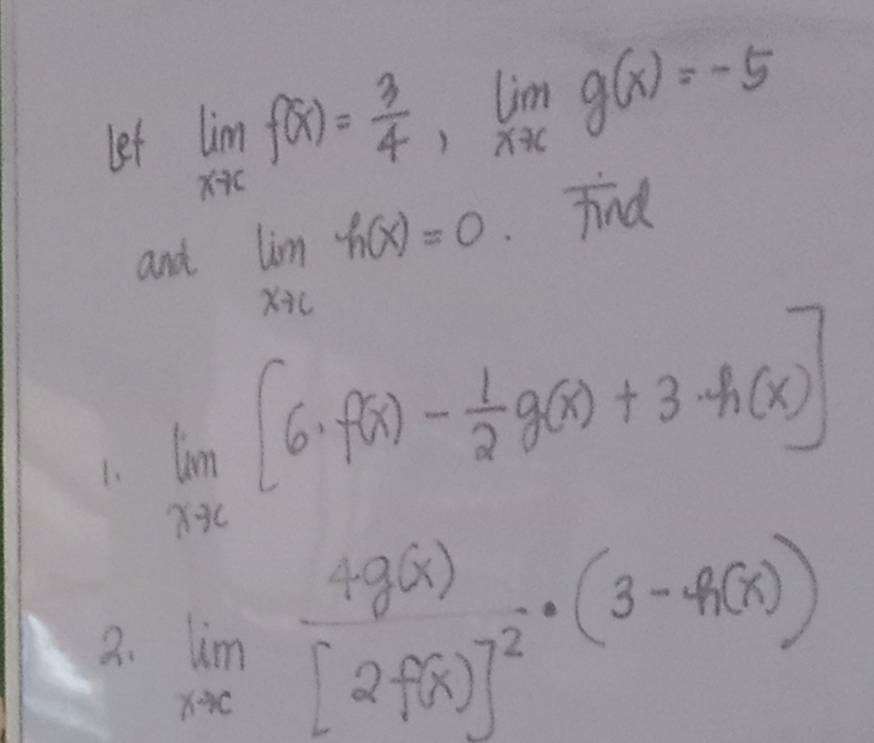 Let lim x→c f(x) = 3/4, lim x→c g(x) = -5
and lim x→c h(x) = 0. Find
1. lim x→c [6·f(x) - 1/2 g(x) + 3·h(x)]
2. lim x→c 4g(x)/[2f(x)]² • (3 - h(x))